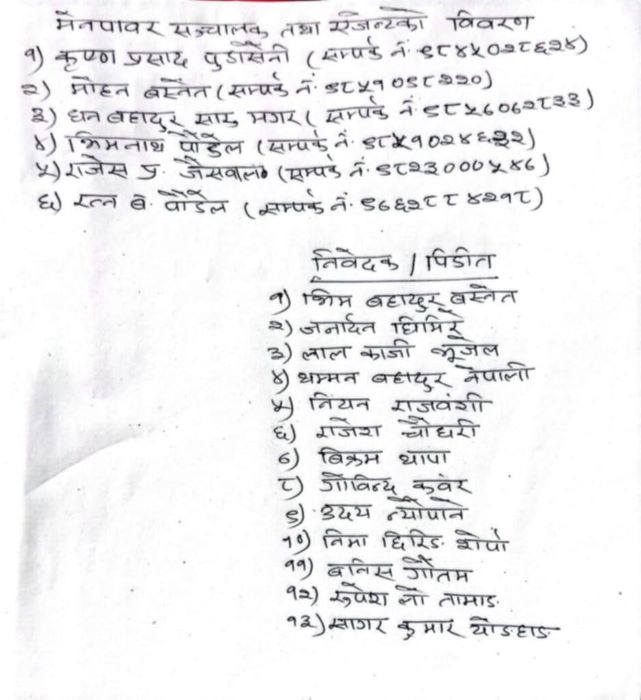 मेनपावर सञ्चालक तथा एजेन्टको विवरण
१) कृष्ण प्रसाद पुडासैनी (सम्पर्क नं ९८४५०२८६२४)
२) मोहन बस्नेत (सम्पर्क नं. ९८५१०५८२२०)
३) धन बहादुर सारु मगर (सम्पर्क नं. ९८५७०७२८३३)
४) भिमनाथ पौडेल (सम्पर्क नं. ९८५१०२४६३२)
५) राजेस प्र. जैसवाल (सम्पर्क नं. ९८२३०००५४७)
६) रत्न ब. पौडेल (सम्पर्क नं. ९७६२८८४२१८)
निवेदक / पिडीत
१) भिम बहादुर बस्नेत
२) जनार्दन घिमिरे
३) लाल काजी भूजेल
४) थम्मन बहादुर नेपाली
५) नियन राजवंशी
६) राजेश चौधरी
७) बिक्रम थापा
८) गोविन्द कुवंर
९) उदय न्यौपाने
१०) निमा छिरिङ शेर्पा
११) बनिस गौतम
१२) रुपेश लो तामाङ
१३) सागर कुमार योङहाङ